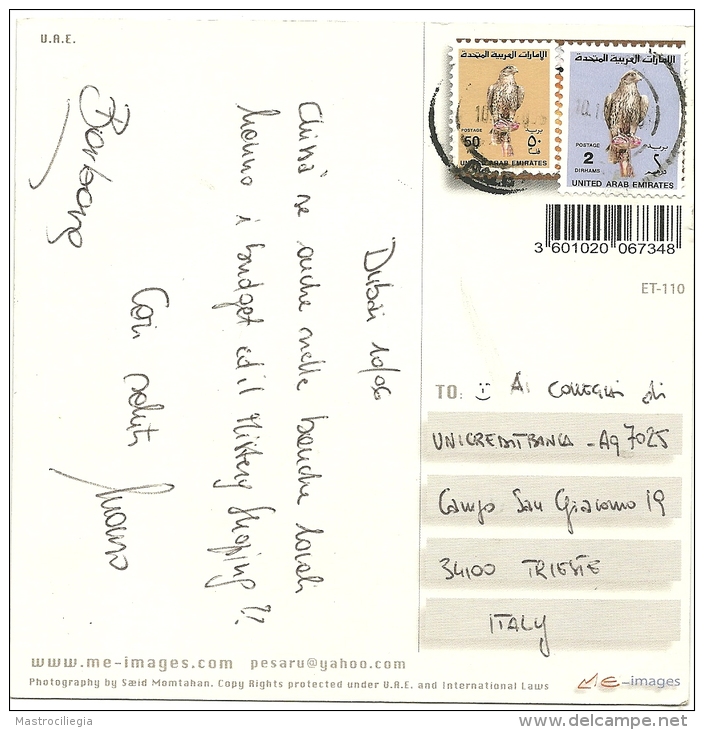 U.A.E.
Dubai 10/06
Chissà se anche nelle banche locali
hanno i budget ed il Mistery Shopping ??
Cari saluti
Barbara
الإمارات العربية المتحدة
POSTAGE
50
بريد
٥٠
فلس
UNITED ARAB EMIRATES
الإمارات العربية المتحدة
POSTAGE
2
DIRHAMS
بريد
٢
درهم
UNITED ARAB EMIRATES
3 601020 067348
ET-110
TO: Ai COLLEGHI di
UNICREDIT BANCA - Ag 7025
Campo San Giacomo 19
34100 TRIESTE
ITALY
www.me-images.com pesaru@yahoo.com
Photography by Sæid Momtahan. Copy Rights protected under U.A.E. and International Laws
ME-images
Mastrociliegia
www.delcampe.net